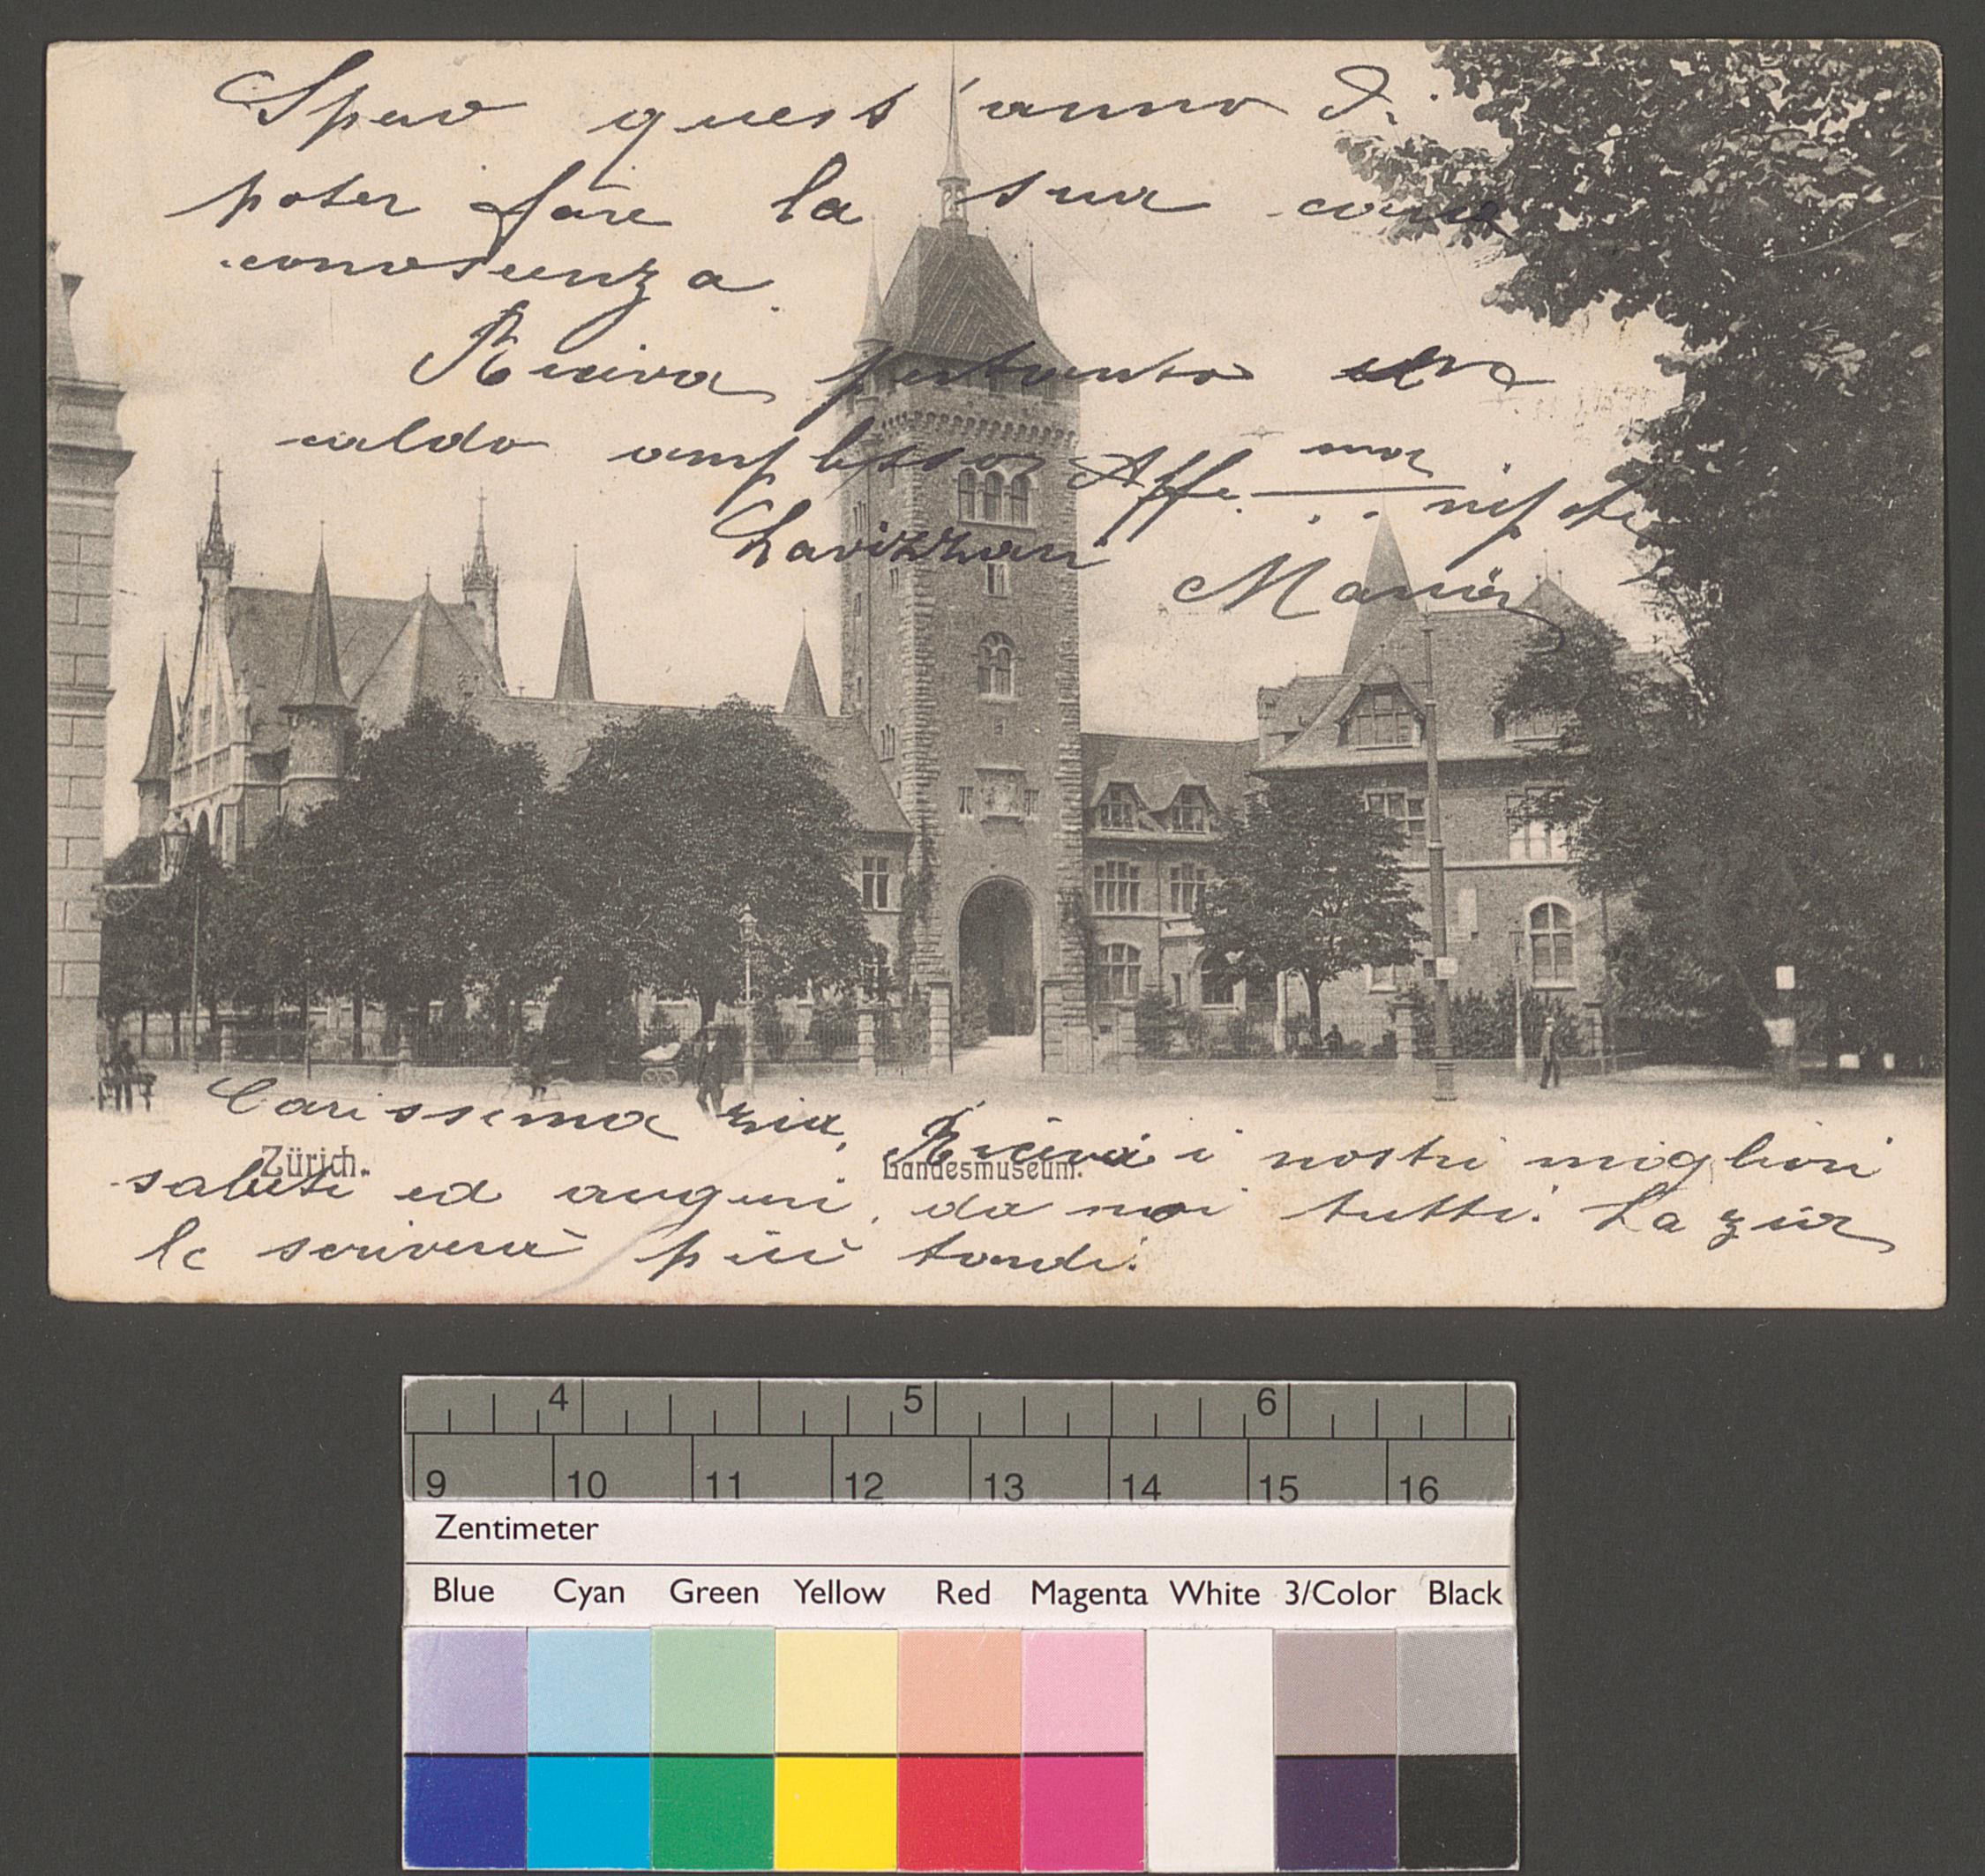 Spero quest'anno di
poter fare la sua cara
conoscenza.
Riceva pertanto un
caldo amplesso Aff.ma nipote
Lavizzari
Maria
Carissima zia, Riceva i nostri migliori
Zürich. Landesmuseum.
saluti ed auguri, da noi tutti. La zia
le scriverà più tardi.
4 5 6
9 10 11 12 13 14 15 16
Zentimeter
Blue Cyan Green Yellow Red Magenta White 3/Color Black